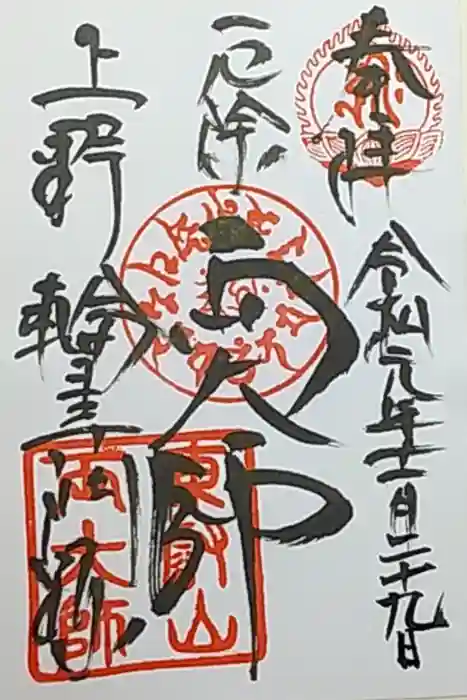 奉拝
令和元年十一月二十九日
厄除
両大師
上野
輪王寺門跡
東叡山
両大師